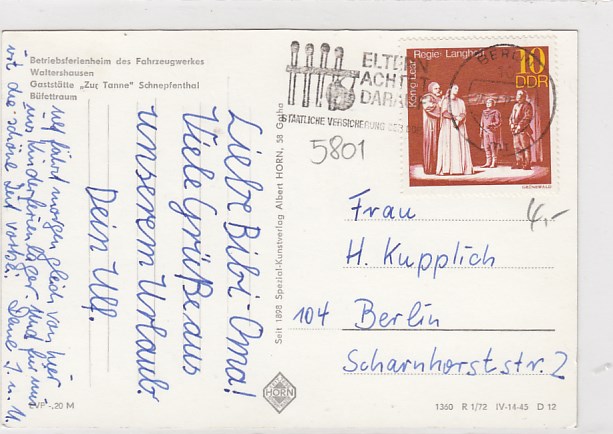 Betriebsferienheim des Fahrzeugwerkes
Waltershausen
Gaststätte „Zur Tanne" Schnepfenthal
Büfettraum
Liebe Bibi-Oma!
Viele Grüße aus
unserem Urlaub.
Dein Ulf.
Ulf fährt morgen gleich von hier
ins Kinderferienlager. Und für uns
ist die schöne Zeit vorbei. Deine J. u. U.
EVP -,20 M
Seit 1898 Spezial-Kunstverlag Albert HORN, 58 Gotha
HORN
ELTERN
ACHTET
DARAUF
STAATLICHE VERSICHERUNG DER DDR
5801
BERLIN
Regie: Langhoff
König Lear
10
DDR
4,-
Frau
H. Kupplich
104 Berlin
Scharnhorststr. 2
1360 R 1/72 IV-14-45 D 12